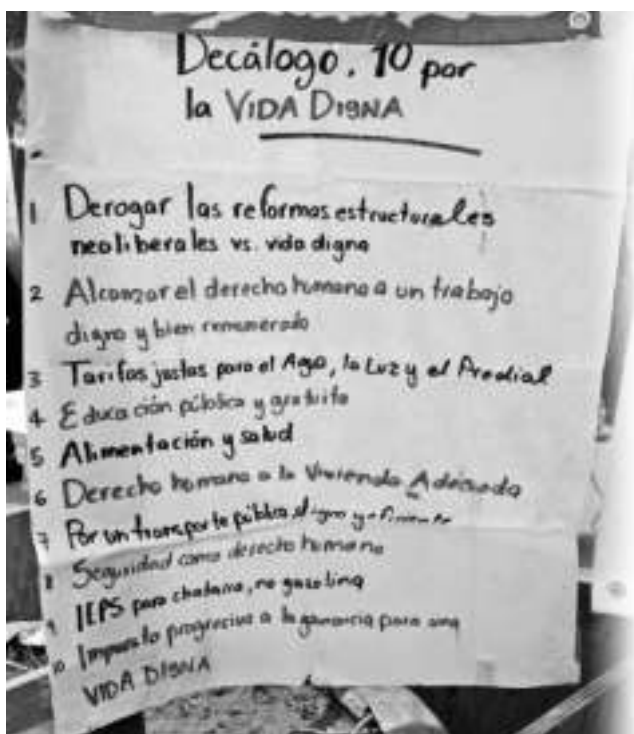 Decálogo. 10 por
la VIDA DIGNA
1 Derogar las reformas estructurales
neoliberales vs. vida digna
2 Alcanzar el derecho humano a un trabajo
digno y bien remunerado
3 Tarifas justas para el Agua, la Luz y el Predial
4 Educación pública y gratuita
5 Alimentación y salud
6 Derecho humano a la Vivienda Adecuada
7 Por un transporte público, digno y eficiente
8 Seguridad como derecho humano
9 IEPS para chatarra, no gasolina
10 Impuesto progresivo a la ganancia para una
VIDA DIGNA